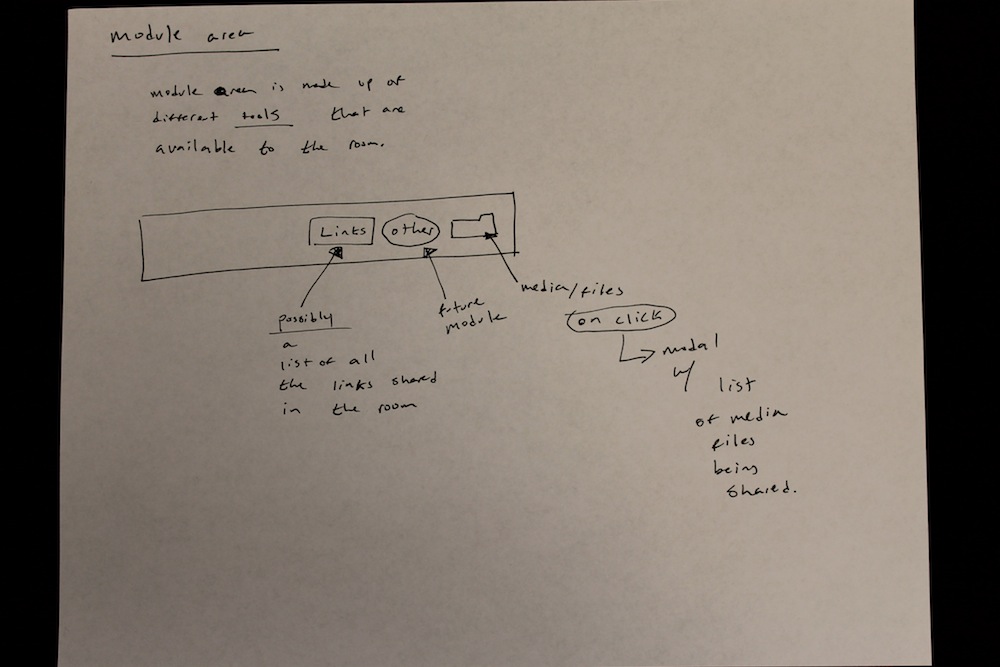 module area
module area is made up of
different tools that are
available to the room.
Links
other
possibly
a
list of all
the links shared
in the room
future
module
media/files
on click
modal
w/
list
of media
files
being
shared.